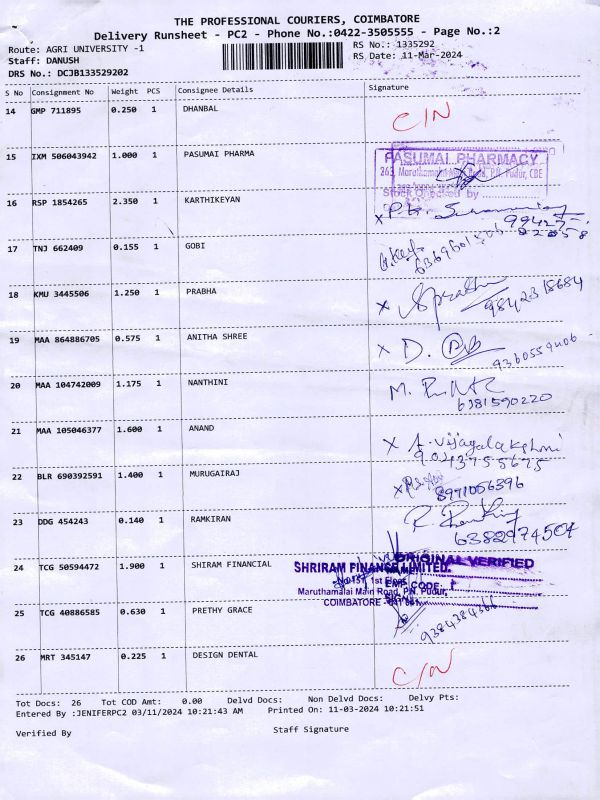 THE PROFESSIONAL COURIERS, COIMBATORE
Delivery Runsheet - PC2 - Phone No.:0422-3505555 - Page No.:2
Route: AGRI UNIVERSITY -1
RS No.: 1335292
Staff: DANUSH
RS Date: 11-Mar-2024
DRS No.: DCJB133529202
S No Consignment No Weight PCS Consignee Details Signature
14 GMP 711895 0.250 1 DHANBAL C/N
15 IXM 506043942 1.000 1 PASUMAI PHARMA
PASUMAI PHARMACY
263, Maruthamalai Main Road, P.N. Pudur, CBE
Stock Checked by
16 RSP 1854265 2.350 1 KARTHIKEYAN X
17 TNJ 662409 0.155 1 GOBI
18 KMU 3445506 1.250 1 PRABHA X 9842318684
19 MAA 864886705 0.575 1 ANITHA SHREE X D.
9360559406
20 MAA 104742009 1.175 1 NANTHINI M.
6381590220
21 MAA 105046377 1.600 1 ANAND X A. Vijayalakshmi
9043755675
22 BLR 690392591 1.400 1 MURUGAIRAJ X
8971056396
23 DDG 454243 0.140 1 RAMKIRAN R.
6382974504
24 TCG 50594472 1.900 1 SHIRAM FINANCIAL
ORIGINAL VERIFIED
SHRIRAM FINANCE LIMITED.
NAME
1st Floor
EMP. CODE:
Maruthamalai Main Road, P.N. Pudur,
SIGN
COIMBATORE
25 TCG 40886585 0.630 1 PRETHY GRACE 9384384366
26 MRT 345147 0.225 1 DESIGN DENTAL C/N
Tot Docs: 26 Tot COD Amt: 0.00 Delvd Docs: Non Delvd Docs: Delvy Pts:
Entered By :JENIFERPC2 03/11/2024 10:21:43 AM Printed On: 11-03-2024 10:21:51
Verified By Staff Signature